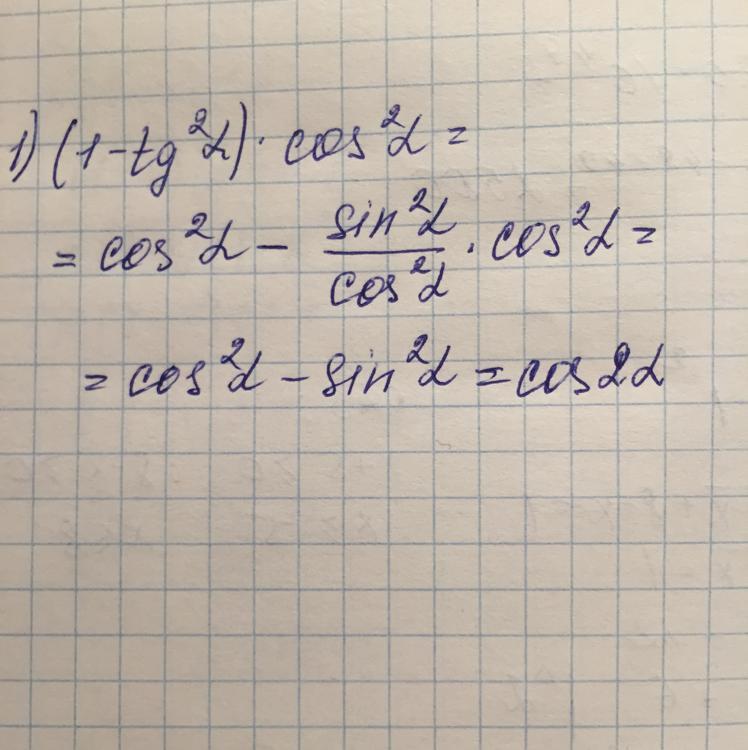 1) (1-tg²α)·cos²α=
=cos²α- sin²α/cos²α ·cos²α=
=cos²α-sin²α=cos2α